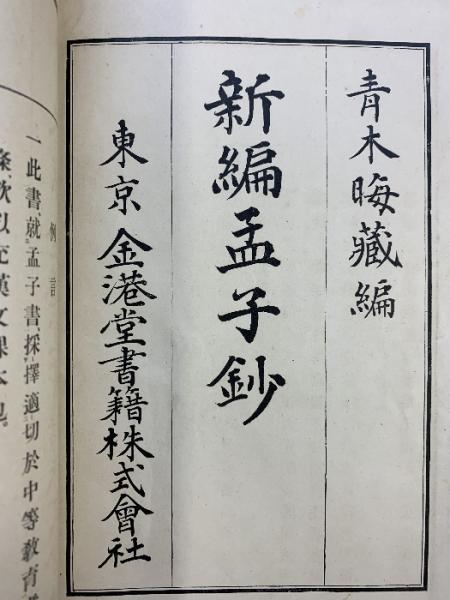 青木晦藏編
新編孟子鈔
東京金港堂書籍株式會社
例言
一此書就孟子書採擇適切於中等教育
條款以充漢文課本也。